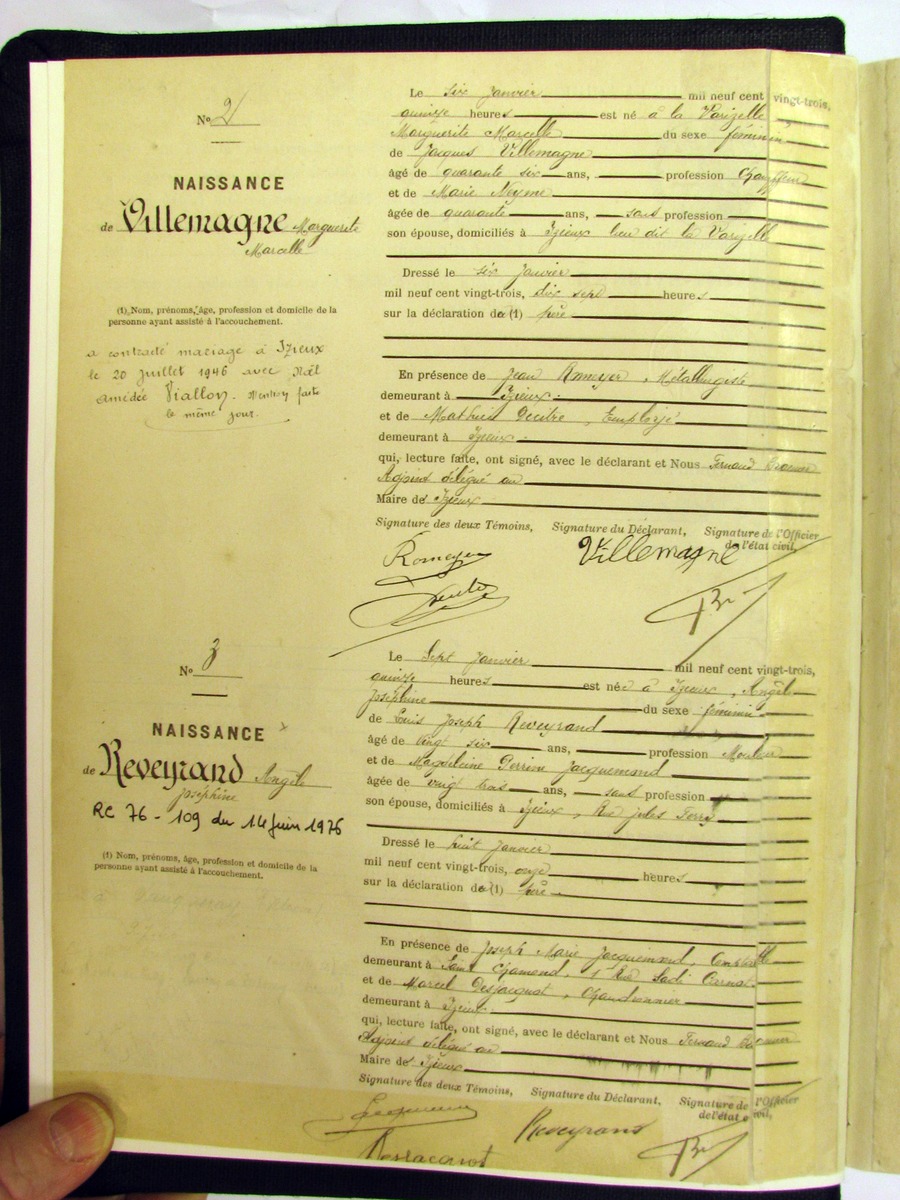 No 2
NAISSANCE
de Villemagne Marguerite
Marcelle
(1) Nom, prénoms, âge, profession et domicile de la
personne ayant assisté à l'accouchement.
a contracté mariage à Izieux
le 20 juillet 1946 avec Noël
amédée Viallon. Mention faite
le même jour.
Le six Janvier mil neuf cent vingt-trois,
quinze heures est né à la Varizelle
Marguerite Marcelle du sexe féminin
de Jacques Villemagne
âgé de quarante six ans, profession Chauffeur
et de Marie Neyme
âgée de quarante ans, sans profession
son épouse, domiciliés à Izieux lieu dit la Varizelle
Dressé le six Janvier
mil neuf cent vingt-trois, dix sept heures
sur la déclaration du (1) père
En présence de Jean Romeyer, Métallurgiste
demeurant à Izieux
et de Mathieu Decitre, Employé
demeurant à Izieux
qui, lecture faite, ont signé, avec le déclarant et Nous Fernand
Adjoint délégué au
Maire de Izieux
Signature des deux Témoins, Signature du Déclarant, Signature de l'Officier
de l'état civil,
Romeyer Villemagne
No 3
NAISSANCE
de Reveyrand Angèle
Joséphine
RC 76 - 109 du 14 juin 1976
(1) Nom, prénoms, âge, profession et domicile de la
personne ayant assisté à l'accouchement.
Le Sept Janvier mil neuf cent vingt-trois,
quinze heures est née à Izieux, Angèle
Joséphine du sexe féminin
de Louis Joseph Reveyrand
âgé de vingt six ans, profession Mouleur
et de Magdeleine Perrine Jacquemond
âgée de vingt trois ans, sans profession
son épouse, domiciliés à Izieux, Rue jules Ferry
Dressé le huit Janvier
mil neuf cent vingt-trois, onze heures
sur la déclaration du (1) père
En présence de Joseph Marie Jacquemond, Comptable
demeurant à Saint Chamond, 1 Rue Sadi Carnot
et de Marcel Desjacquot, Chaudronnier
demeurant à Izieux
qui, lecture faite, ont signé, avec le déclarant et Nous Fernand
Adjoint délégué au
Maire de Izieux
Signature des deux Témoins, Signature du Déclarant, Signature de l'Officier
de l'état civil,
Reveyrand